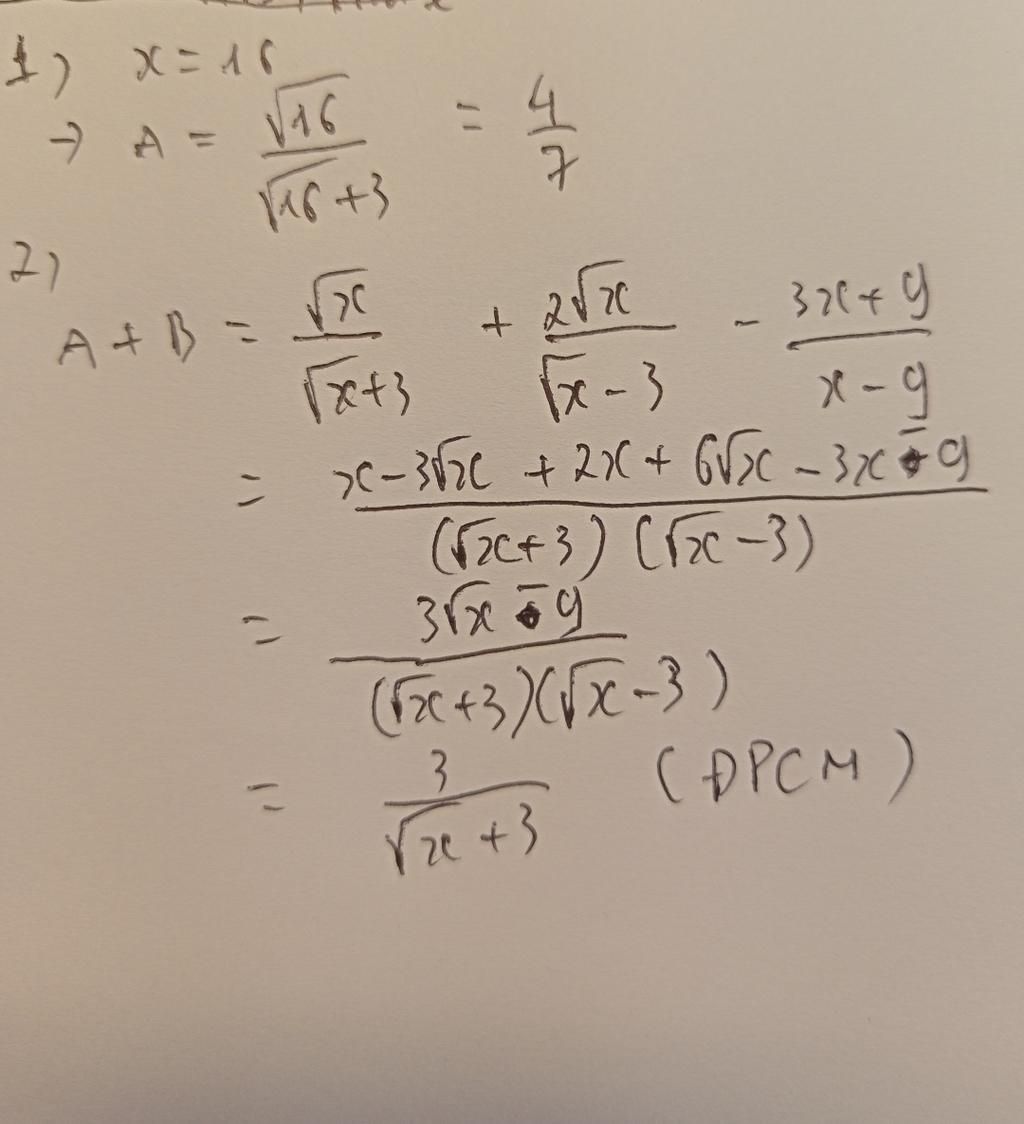 1) x = 16
→ A = √16 / (√16 + 3) = 4/7
2)
A + B = √x / (√x + 3) + 2√x / (√x - 3) - (3x + 9) / (x - 9)
= (x - 3√x + 2x + 6√x - 3x - 9) / ((√x + 3)(√x - 3))
= (3√x - 9) / ((√x + 3)(√x - 3))
= 3 / (√x + 3) (ĐPCM)